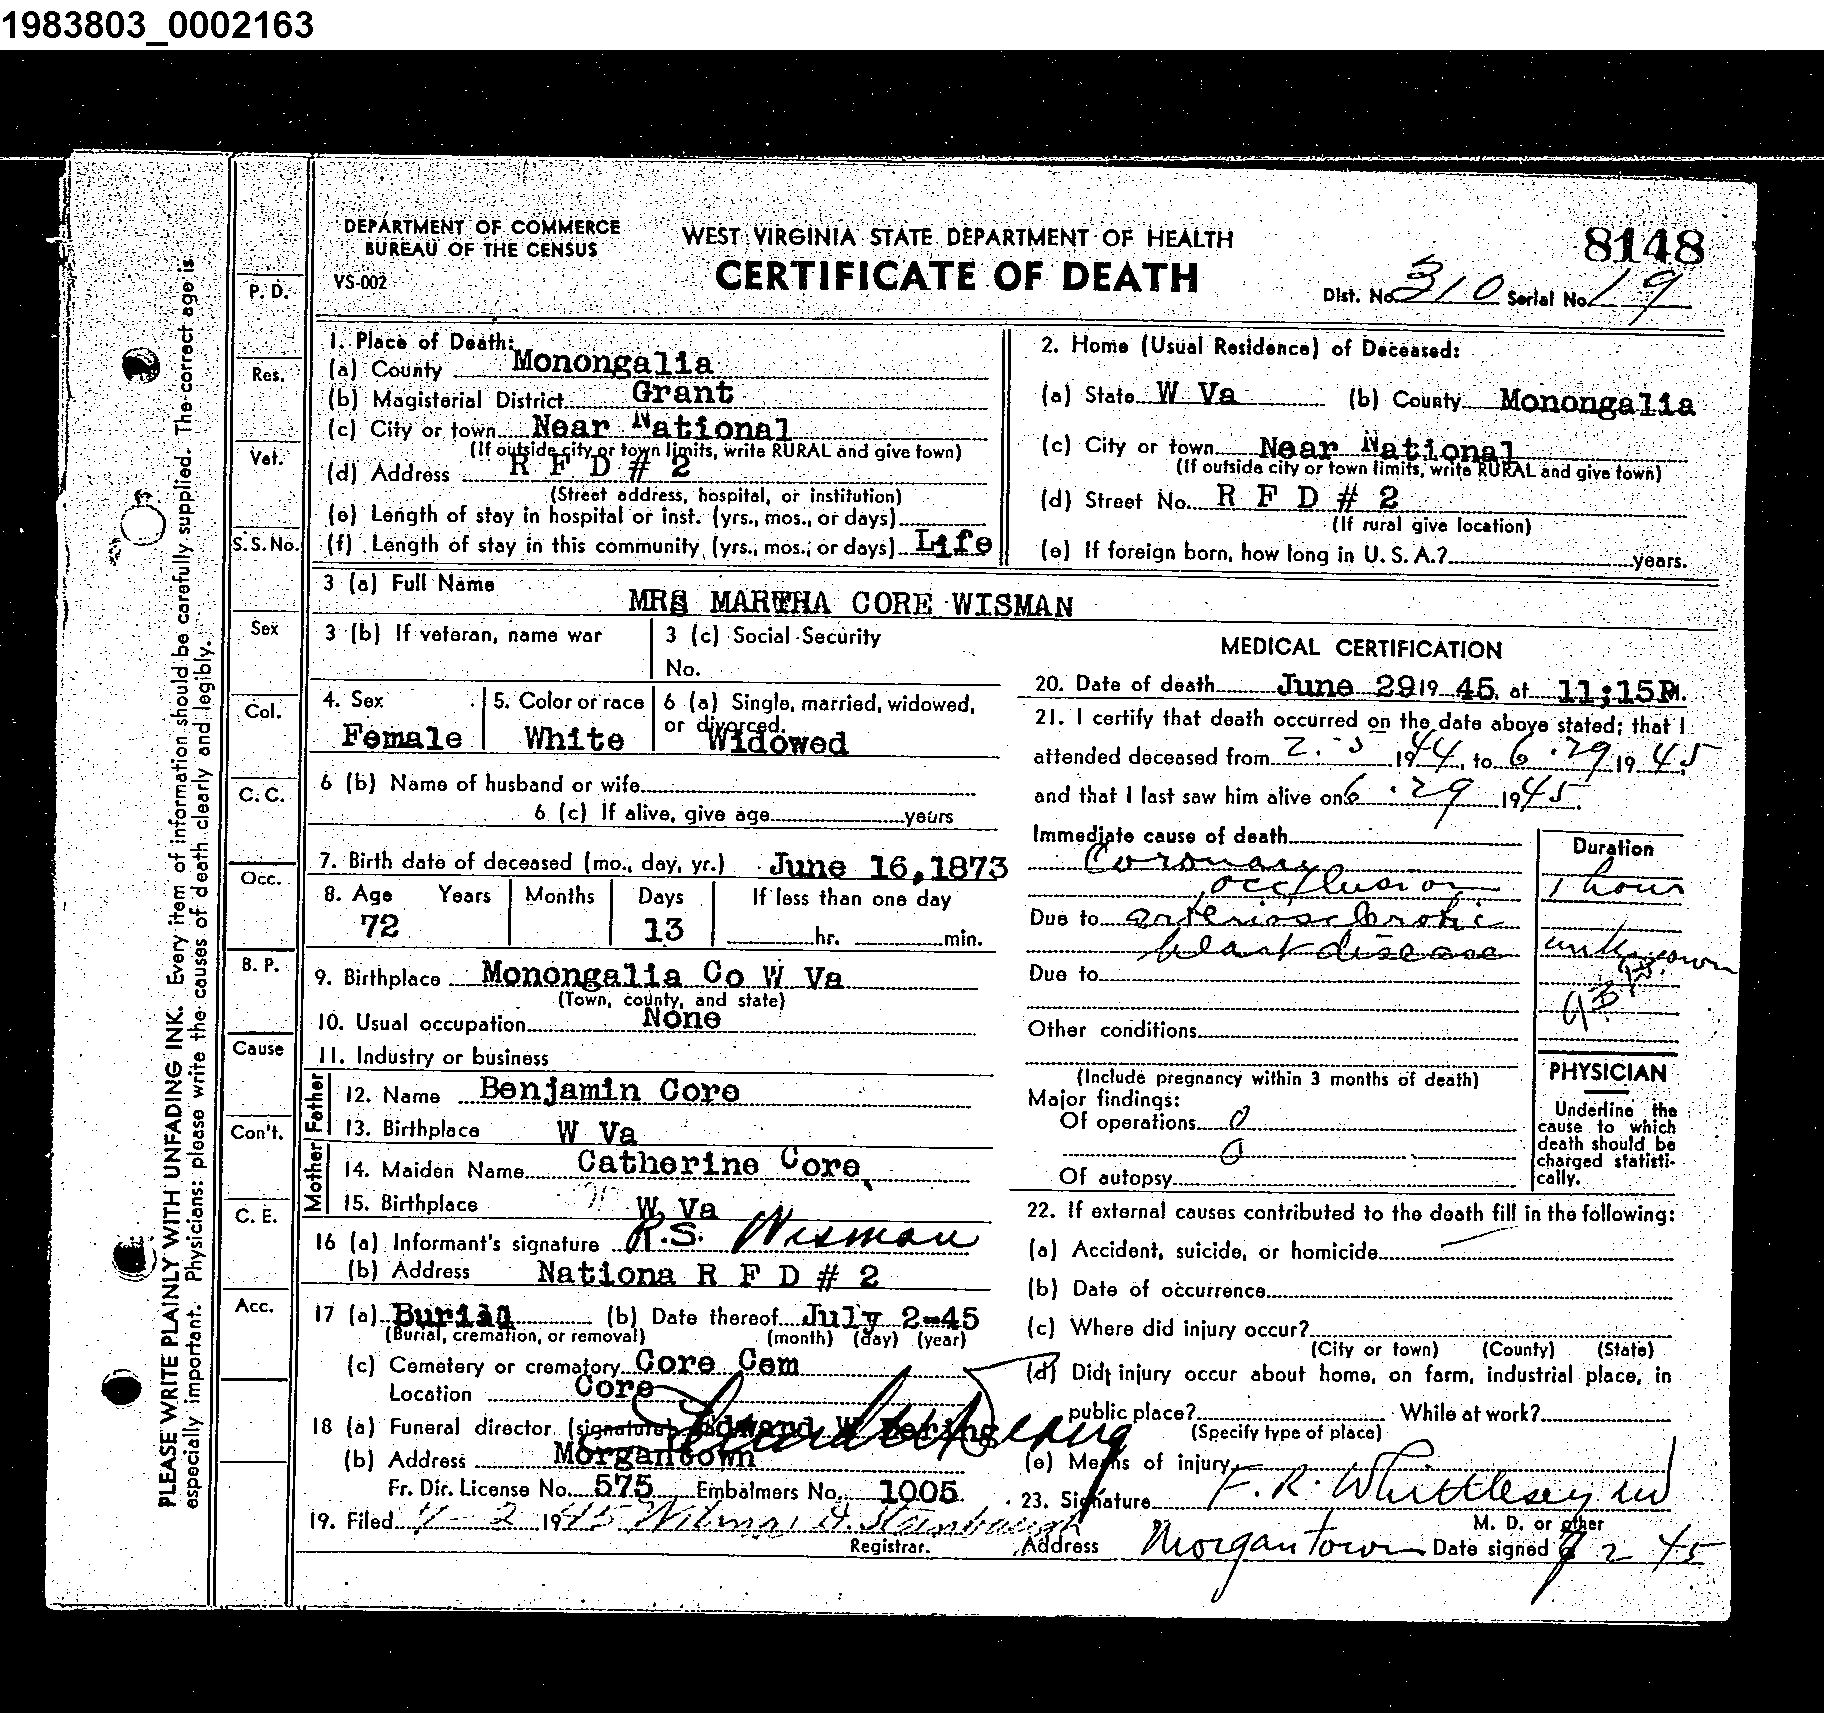 1983803_0002163
DEPARTMENT OF COMMERCE
BUREAU OF THE CENSUS
VS-002
WEST VIRGINIA STATE DEPARTMENT OF HEALTH
CERTIFICATE OF DEATH
8148
Dist. No. 310 Serial No. 19
PLEASE WRITE PLAINLY WITH UNFADING INK. Every item of information should be carefully supplied. The correct age is
especially important. Physicians: please write the causes of death clearly and legibly.
P. D.
Res.
Vet.
S.S. No.
Sex
Col.
C. C.
Occ.
B. P.
Cause
Con't.
C. E.
Acc.
1. Place of Death:
(a) County Monongalia
(b) Magisterial District Grant
(c) City or town Near National
(If outside city or town limits, write RURAL and give town)
(d) Address R F D # 2
(Street address, hospital, or institution)
(e) Length of stay in hospital or inst. (yrs., mos., or days)
(f) Length of stay in this community (yrs., mos., or days) Life
2. Home (Usual Residence) of Deceased:
(a) State W Va (b) County Monongalia
(c) City or town Near National
(If outside city or town limits, write RURAL and give town)
(d) Street No. R F D # 2
(If rural give location)
(e) If foreign born, how long in U. S. A.? years.
3 (a) Full Name MRS MARTHA CORE WISMAN
3 (b) If veteran, name war
3 (c) Social Security
No.
4. Sex Female
5. Color or race White
6 (a) Single, married, widowed,
or divorced. Widowed
6 (b) Name of husband or wife
6 (c) If alive, give age years
7. Birth date of deceased (mo., day, yr.) June 16, 1873
8. Age Years Months Days If less than one day
72 13 hr. min.
9. Birthplace Monongalia Co W Va
(Town, county, and state)
10. Usual occupation None
11. Industry or business
Father
12. Name Benjamin Core
13. Birthplace W Va
Mother
14. Maiden Name Catherine Core
15. Birthplace W Va
16 (a) Informant's signature R.S. Wisman
(b) Address Nationa R F D # 2
17 (a) Burial (b) Date thereof July 2-45
(Burial, cremation, or removal) (month) (day) (year)
(c) Cemetery or crematory Core Cem
Location Core
18 (a) Funeral director (signature) Edward W
(b) Address Morgantown
Fr. Dir. License No. 575 Embalmers No. 1005
19. Filed 7-2 1945
Registrar.
MEDICAL CERTIFICATION
20. Date of death June 29 19 45 at 11;15P M.
21. I certify that death occurred on the date above stated; that I
attended deceased from 2. 1944, to 6.29 1945
and that I last saw him alive on 6.29 1945.
Immediate cause of death
Coronary
occlusion
Due to arteriosclerotic
heart disease
Due to
Other conditions
(Include pregnancy within 3 months of death)
Major findings:
Of operations 0
0
Of autopsy
Duration
1 hour
unknown
PHYSICIAN
Underline the
cause to which
death should be
charged statisti-
cally.
22. If external causes contributed to the death fill in the following:
(a) Accident, suicide, or homicide
(b) Date of occurrence
(c) Where did injury occur?
(City or town) (County) (State)
(d) Did injury occur about home, on farm, industrial place, in
public place? While at work?
(Specify type of place)
(e) Means of injury
23. Signature F. R. Whittlesey MD
M. D. or other
Address Morgantown Date signed 7 2 45